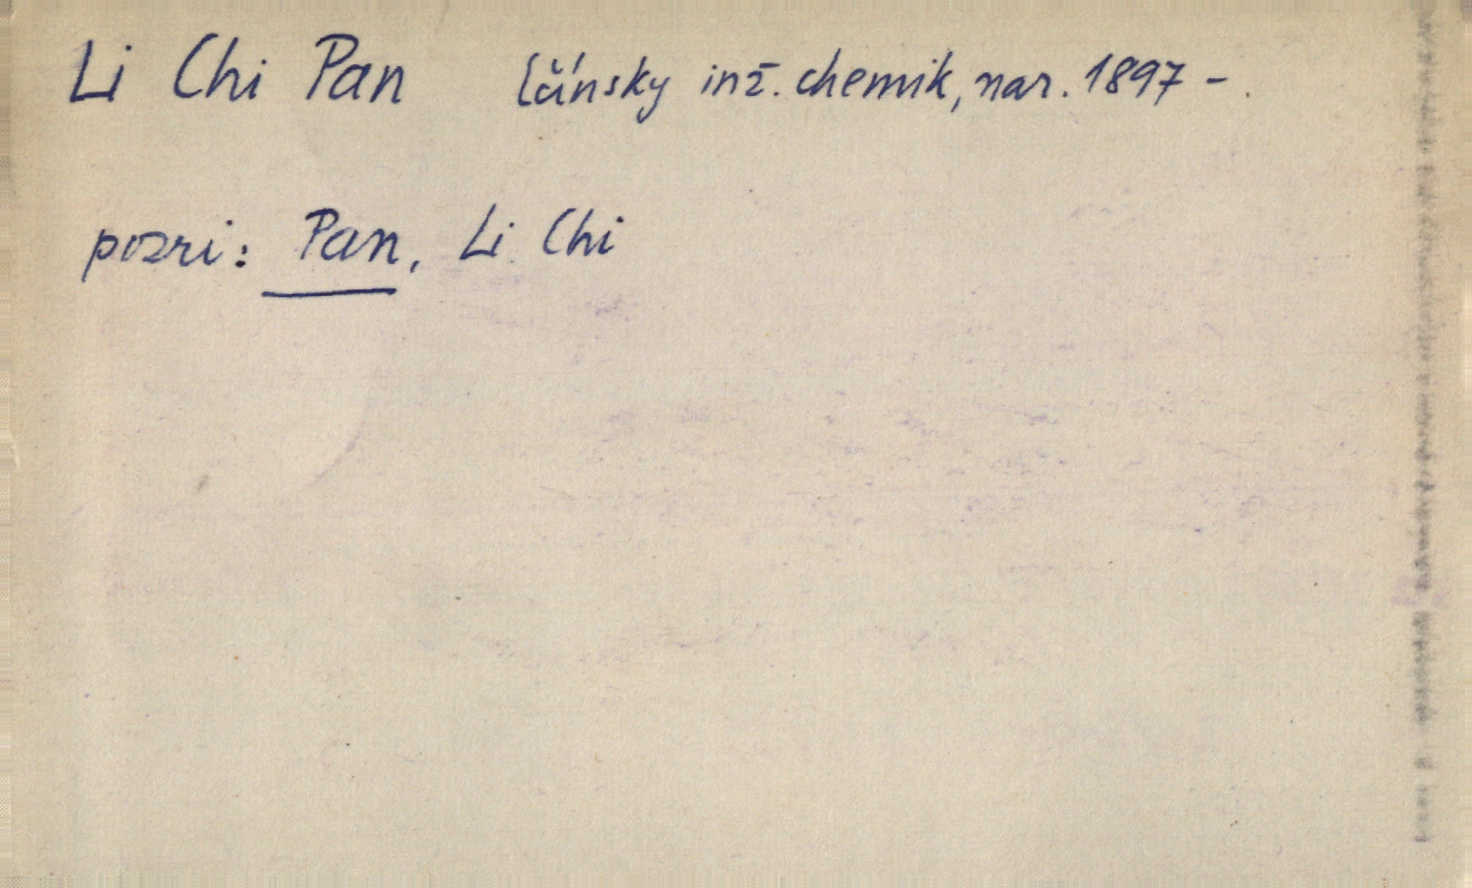 Li Chi Pan [čínsky inž. chemik, nar. 1897 - .
pozri: Pan, Li Chi